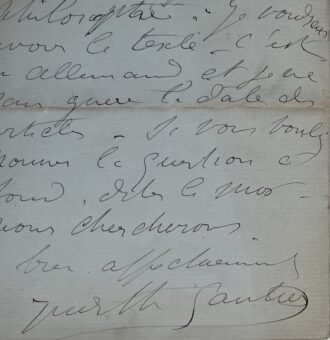 philosophie. Je voudrais
avoir le texte - c'est
allemand, et je ne
sais guère la date des
articles - Si vous voulez
trouver la question à
fond, dites le moi -
nous chercherons
bien affectueusement
Judith Gautier